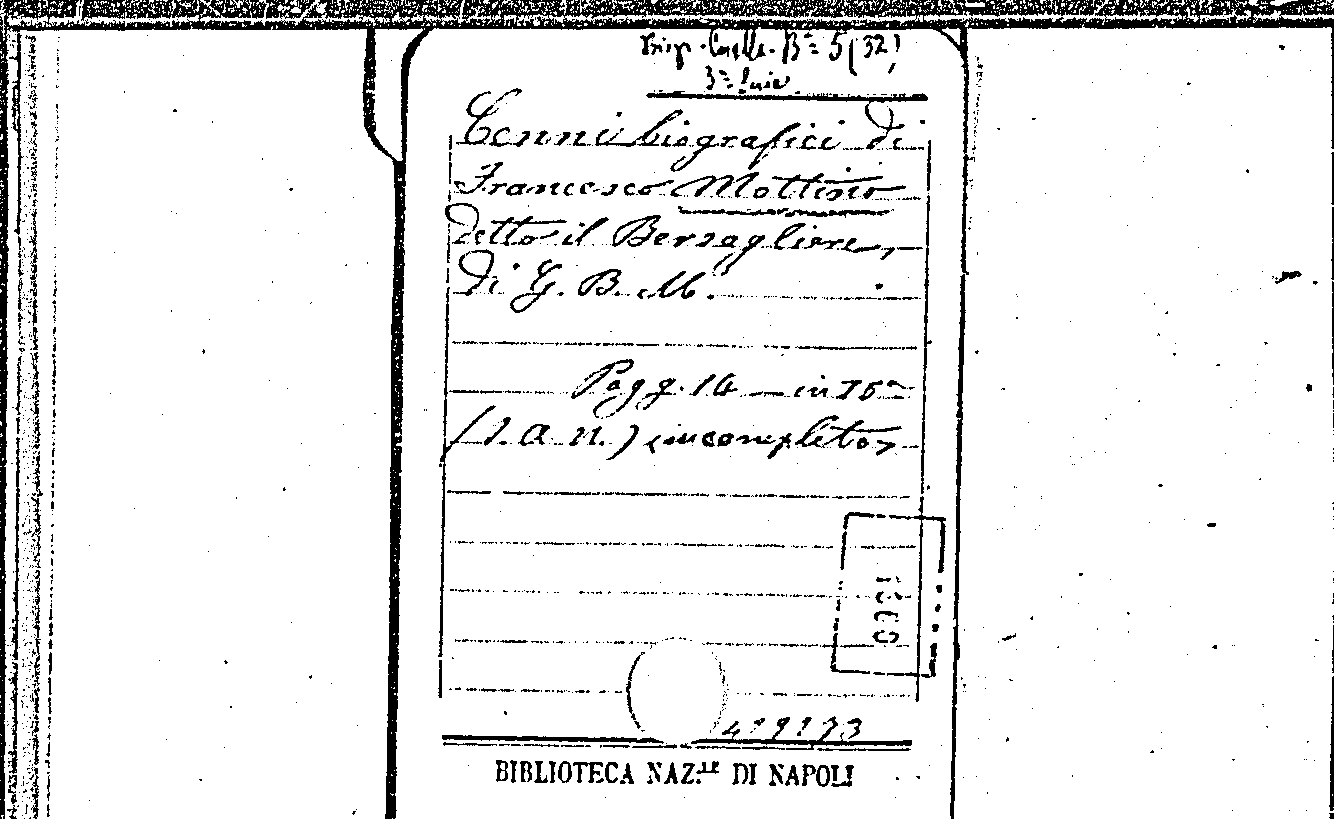 B.ª 5 (32)
3ª Serie
Cenni biografici di
Francesco Mottino
detto il Bersagliere,
di G. B. M.
Pagg. 14 — in
(s. a. n.) incompleto,
BIBLIOTECA NAZ.LE DI NAPOLI